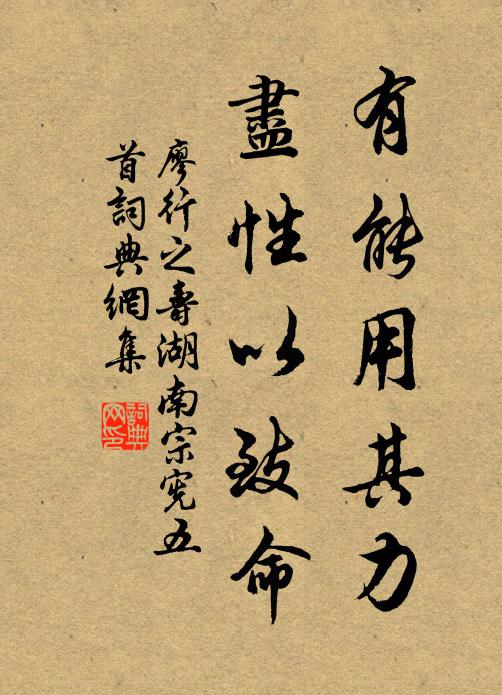 有能用其力
盡性以致命
廖行之壽湖南宗憲五
首詞典網集
詞典
网印